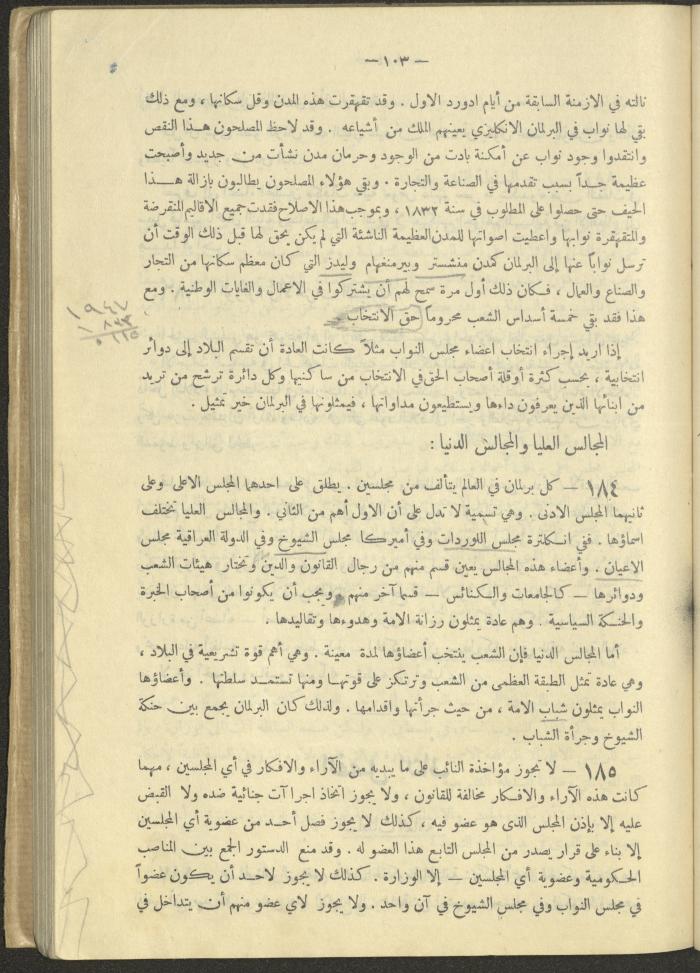 — ١٠٣ —
نالته في الازمنة السابقة من أيام ادورد الاول . وقد تقهقرت هذه المدن وقل سكانها ، ومع ذلك
بقي لها نواب في البرلمان الانكليزي يعينهم الملك من أشياعه . وقد لاحظ المصلحون هـذا النقص
وانتقدوا وجود نواب عن أمكنة بادت من الوجود وحرمان مدن نشأت من جديد وأصبحت
عظيمة جـداً بسبب تقدمها في الصناعة والتجارة . وبقي هؤلاء المصلحون يطالبون بازالة هـــذا
الحيف حتى حصلوا على المطلوب في سنة ١٨٣٢ ، وبموجب هذا الاصلاح فقدت جميع الاقاليم المنقرضة
والمتقهقرة نوابها واعطيت اصواتها للمدن العظيمة الناشئة التي لم يكن يحق لها قبل ذلك الوقت أن
ترسل نواباً عنها إلى البرلمان كمدن منشستر وبيرمنغهام وليدز التي كان معظم سكانها من التجار
والصناع والعمال ، فـكان ذلك أول مرة سمح لهم أن يشتركوا في الاعمال والغايات الوطنية . ومع
هذا فقد بقي خمسة أسداس الشعب محروماً حق الانتخاب .
١٩٤٤
إذا اريد إجراء انتخاب اعضاء مجلس النواب مثلاً كانت العادة أن تقسم البلاد إلى دوائر
انتخابية ، بحسب كثرة أوقلة أصحاب الحق في الانتخاب من ساكنيها وكل دائرة ترشح من تريد
من ابنائها الذين يعرفون داءها ويستطيعون مداواتها ، فيمثلونها في البرلمان خير تمثيل .
المجالس العليا والمجالس الدنيا :
١٨٤ — كل برلمان في العالم يتألف من مجلسين . يطلق على احدهما المجلس الاعلى وعلى
ثانيهما المجلس الادنى . وهي تسمية لا تدل على أن الاول أهم من الثاني . والمجالس العليا تختلف
اسماؤها . ففي انـكلترة مجلس اللوردات وفي أميركا مجلس الشيوخ وفي الدولة العراقية مجلس
الاعيان . وأعضاء هذه المجالس يعين قسم منهم من رجال القانون والدين وتختار هيئات الشعب
ودوائرها — كالجامعات والـكنائس — قسما آخر منهم . ويجب أن يكونوا من أصحاب الخبرة
والحنـكة السياسية . وهم عادة يمثلون رزانة الامة وهدوءها وتقاليدها .
أما المجالس الدنيا فإن الشعب ينتخب أعضاؤها لمدة معينة . وهي أهم قوة تشريعية في البلاد ،
وهي عادة تمثل الطبقة العظمى من الشعب وترتكز على قوتهـا ومنها تستمـد سلطتها . وأعضاؤها
النواب يمثلون شباب الامة ، من حيث جرأتها واقدامها . ولذلك كان البرلمان يجمع بين حنكة
الشيوخ وجرأة الشباب .
١٨٥ — لا تجوز مؤاخذة النائب على ما يبديه من الآراء والافكار في أي المجلسين ، مهما
كانت هذه الآراء والافـكار مخالفة للقانون ، ولا يجوز اتخاذ اجراآت جنائية ضده ولا القبض
عليه إلا بإذن المجلس الذى هو عضو فيه ، كذلك لا يجوز فصل أحـد من عضوية أي المجلسين
إلا بناء على قرار يصدر من المجلس التابع هذا العضو له . وقد منع الدستور الجمع بين المناصب
الحكومية وعضوية أي المجلسين — إلا الوزارة . كذلك لا يجوز لاحـد أن يكون عضواً
في مجلس النواب وفي مجلس الشيوخ في آن واحد . ولا يجوز لاي عضو منهم أن يتداخل في